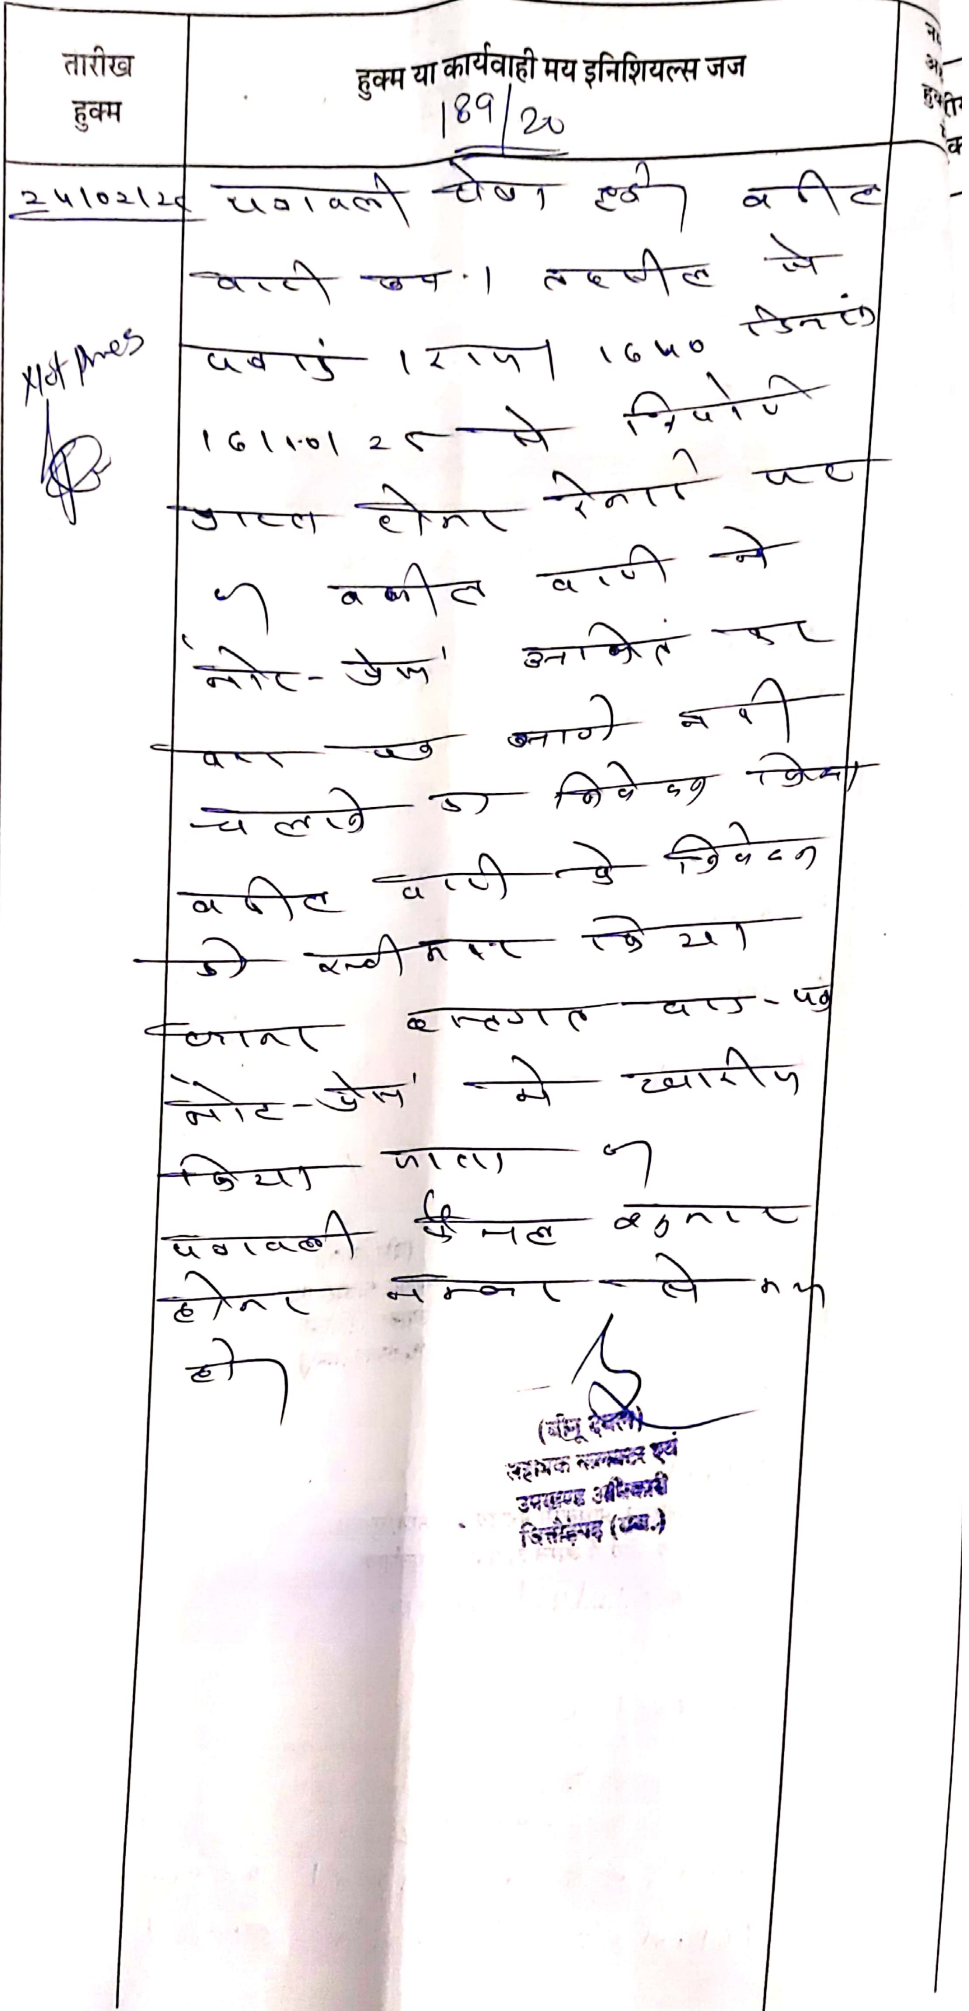 तारीख
हुक्म
हुक्म या कार्यवाही मय इनिशियल्स जज
189/20
पत्रावली पेश हुई। वकील
वादी उप.। तहसील से
पत्रांक । राज । 1640 दिनांक
से रिपोर्ट
प्राप्त होकर
। वकील वादी ने
'नोट-प्रेस' अंकित कर
वाद पत्र आगे नहीं
चलाने का निवेदन किया
वकील वादी के निवेदन
को स्वीकार किया
जाकर हस्तगत वाद-पत्र
'नोट-प्रेस' में खारीज
किया जाता है।
पत्रावली फैसल शुमार
होकर नम्बर से कम
हो।
Not press
सहायक कलक्टर एवं
उपखण्ड अधिकारी
चित्तौड़गढ़ (राज.)